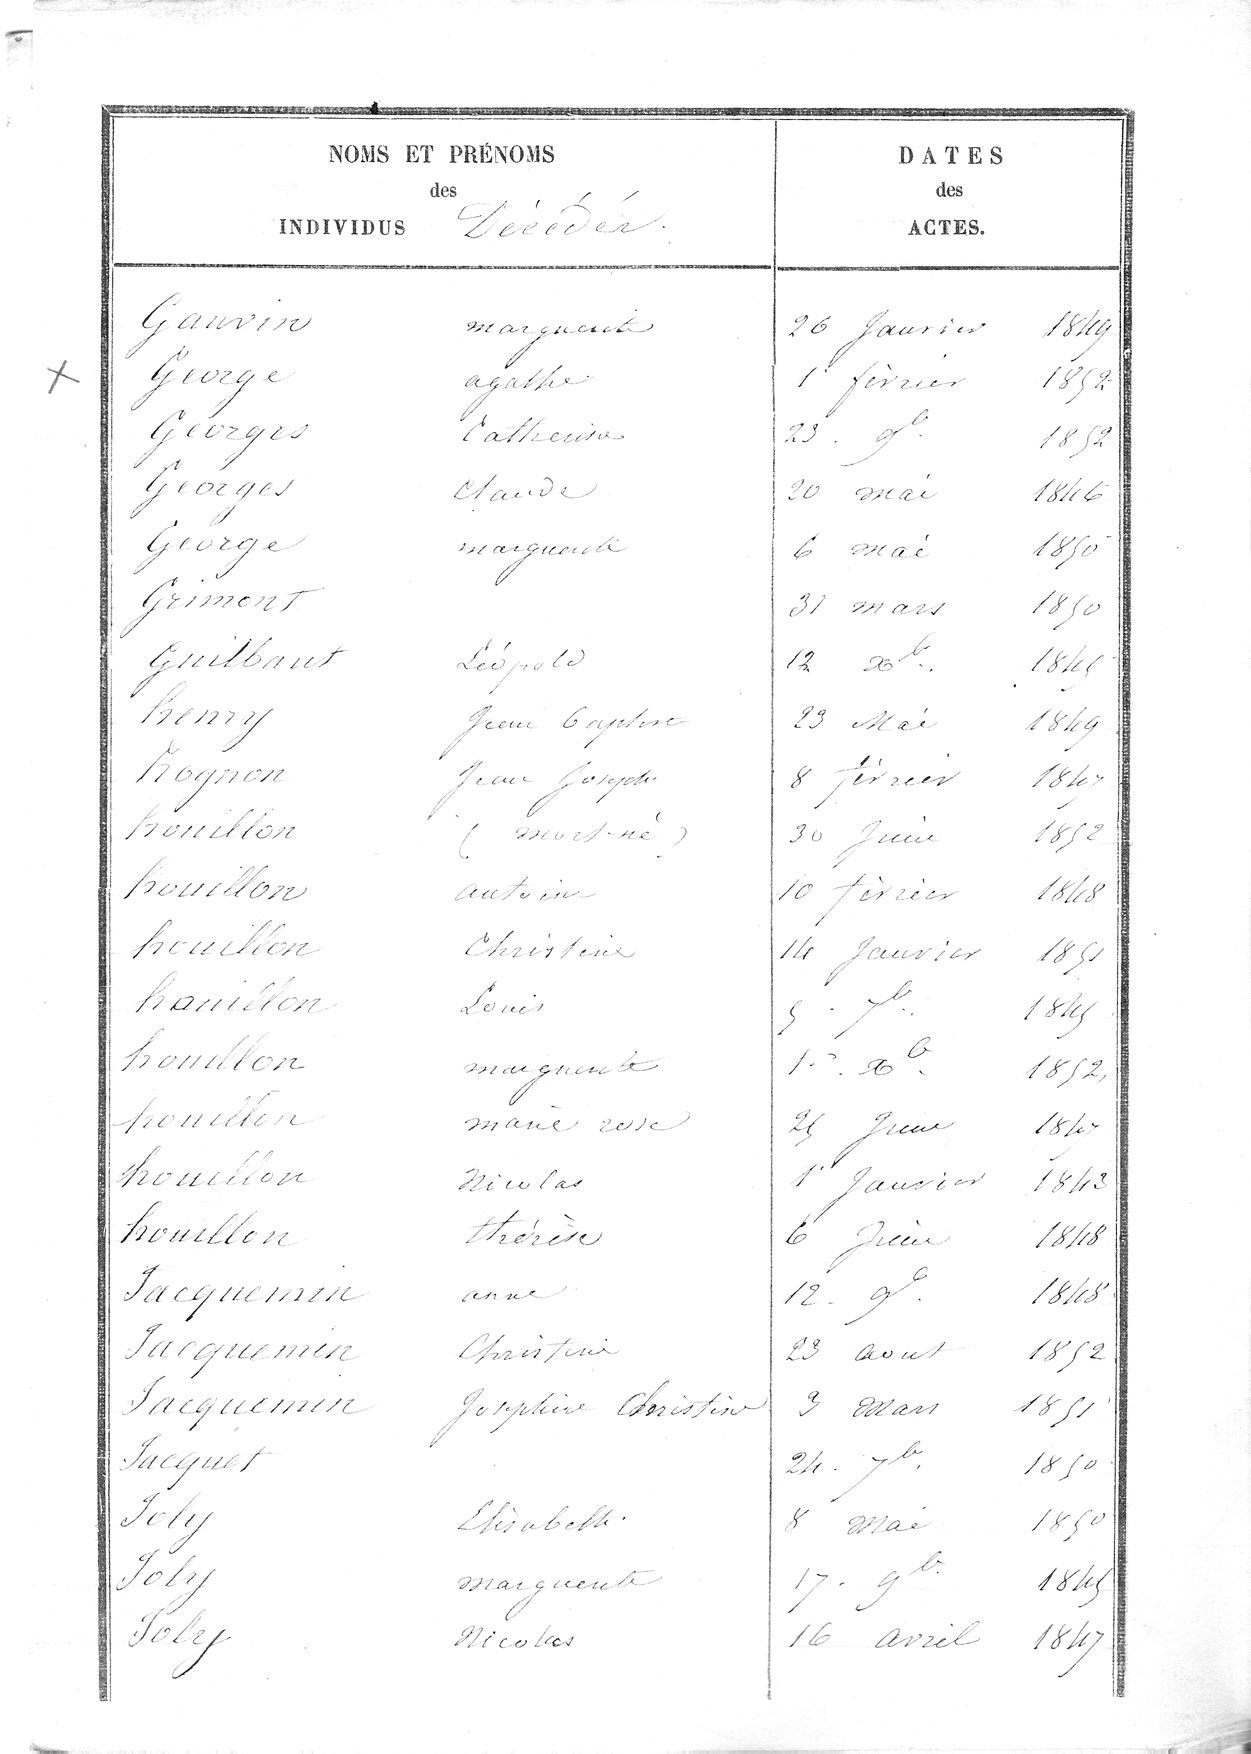 NOMS ET PRÉNOMS DATES
des des
INDIVIDUS Décédés. ACTES.
Gauvin marguerite 26 Janvier 1849
George agathe 1r février 1852
Georges Catherine 23. 9b. 1852
Georges Claude 20 mai 1846
George marguerite 6 mai 1850
Grimont 31 mars 1850
Guilbaut Léopold 12 xb. 1845
henry Jean baptiste 23 Mai 1849
hognon Jean Joseph 8 février 1847
houillon ( mort-né ) 30 Juin 1852
houillon antoine 10 février 1848
houillon Christine 14 Janvier 1851
houillon Louis 5. 7b. 1845
houillon marguerite 1r. xb. 1852
houillon marie rose 25 Juin 1847
houillon Nicolas 1r Janvier 1843
houillon thérèse 6 Juin 1848
Jacquemin anne 12. 9b. 1848
Jacquemin Christine 23 aout 1852
Jacquemin Joséphine Christine 3 Mars 1851
Jacquet 24. 7b. 1850
Joly Elisabeth 8 Mai 1850
Joly marguerite 17. 9b. 1845
Joly Nicolas 16 avril 1847